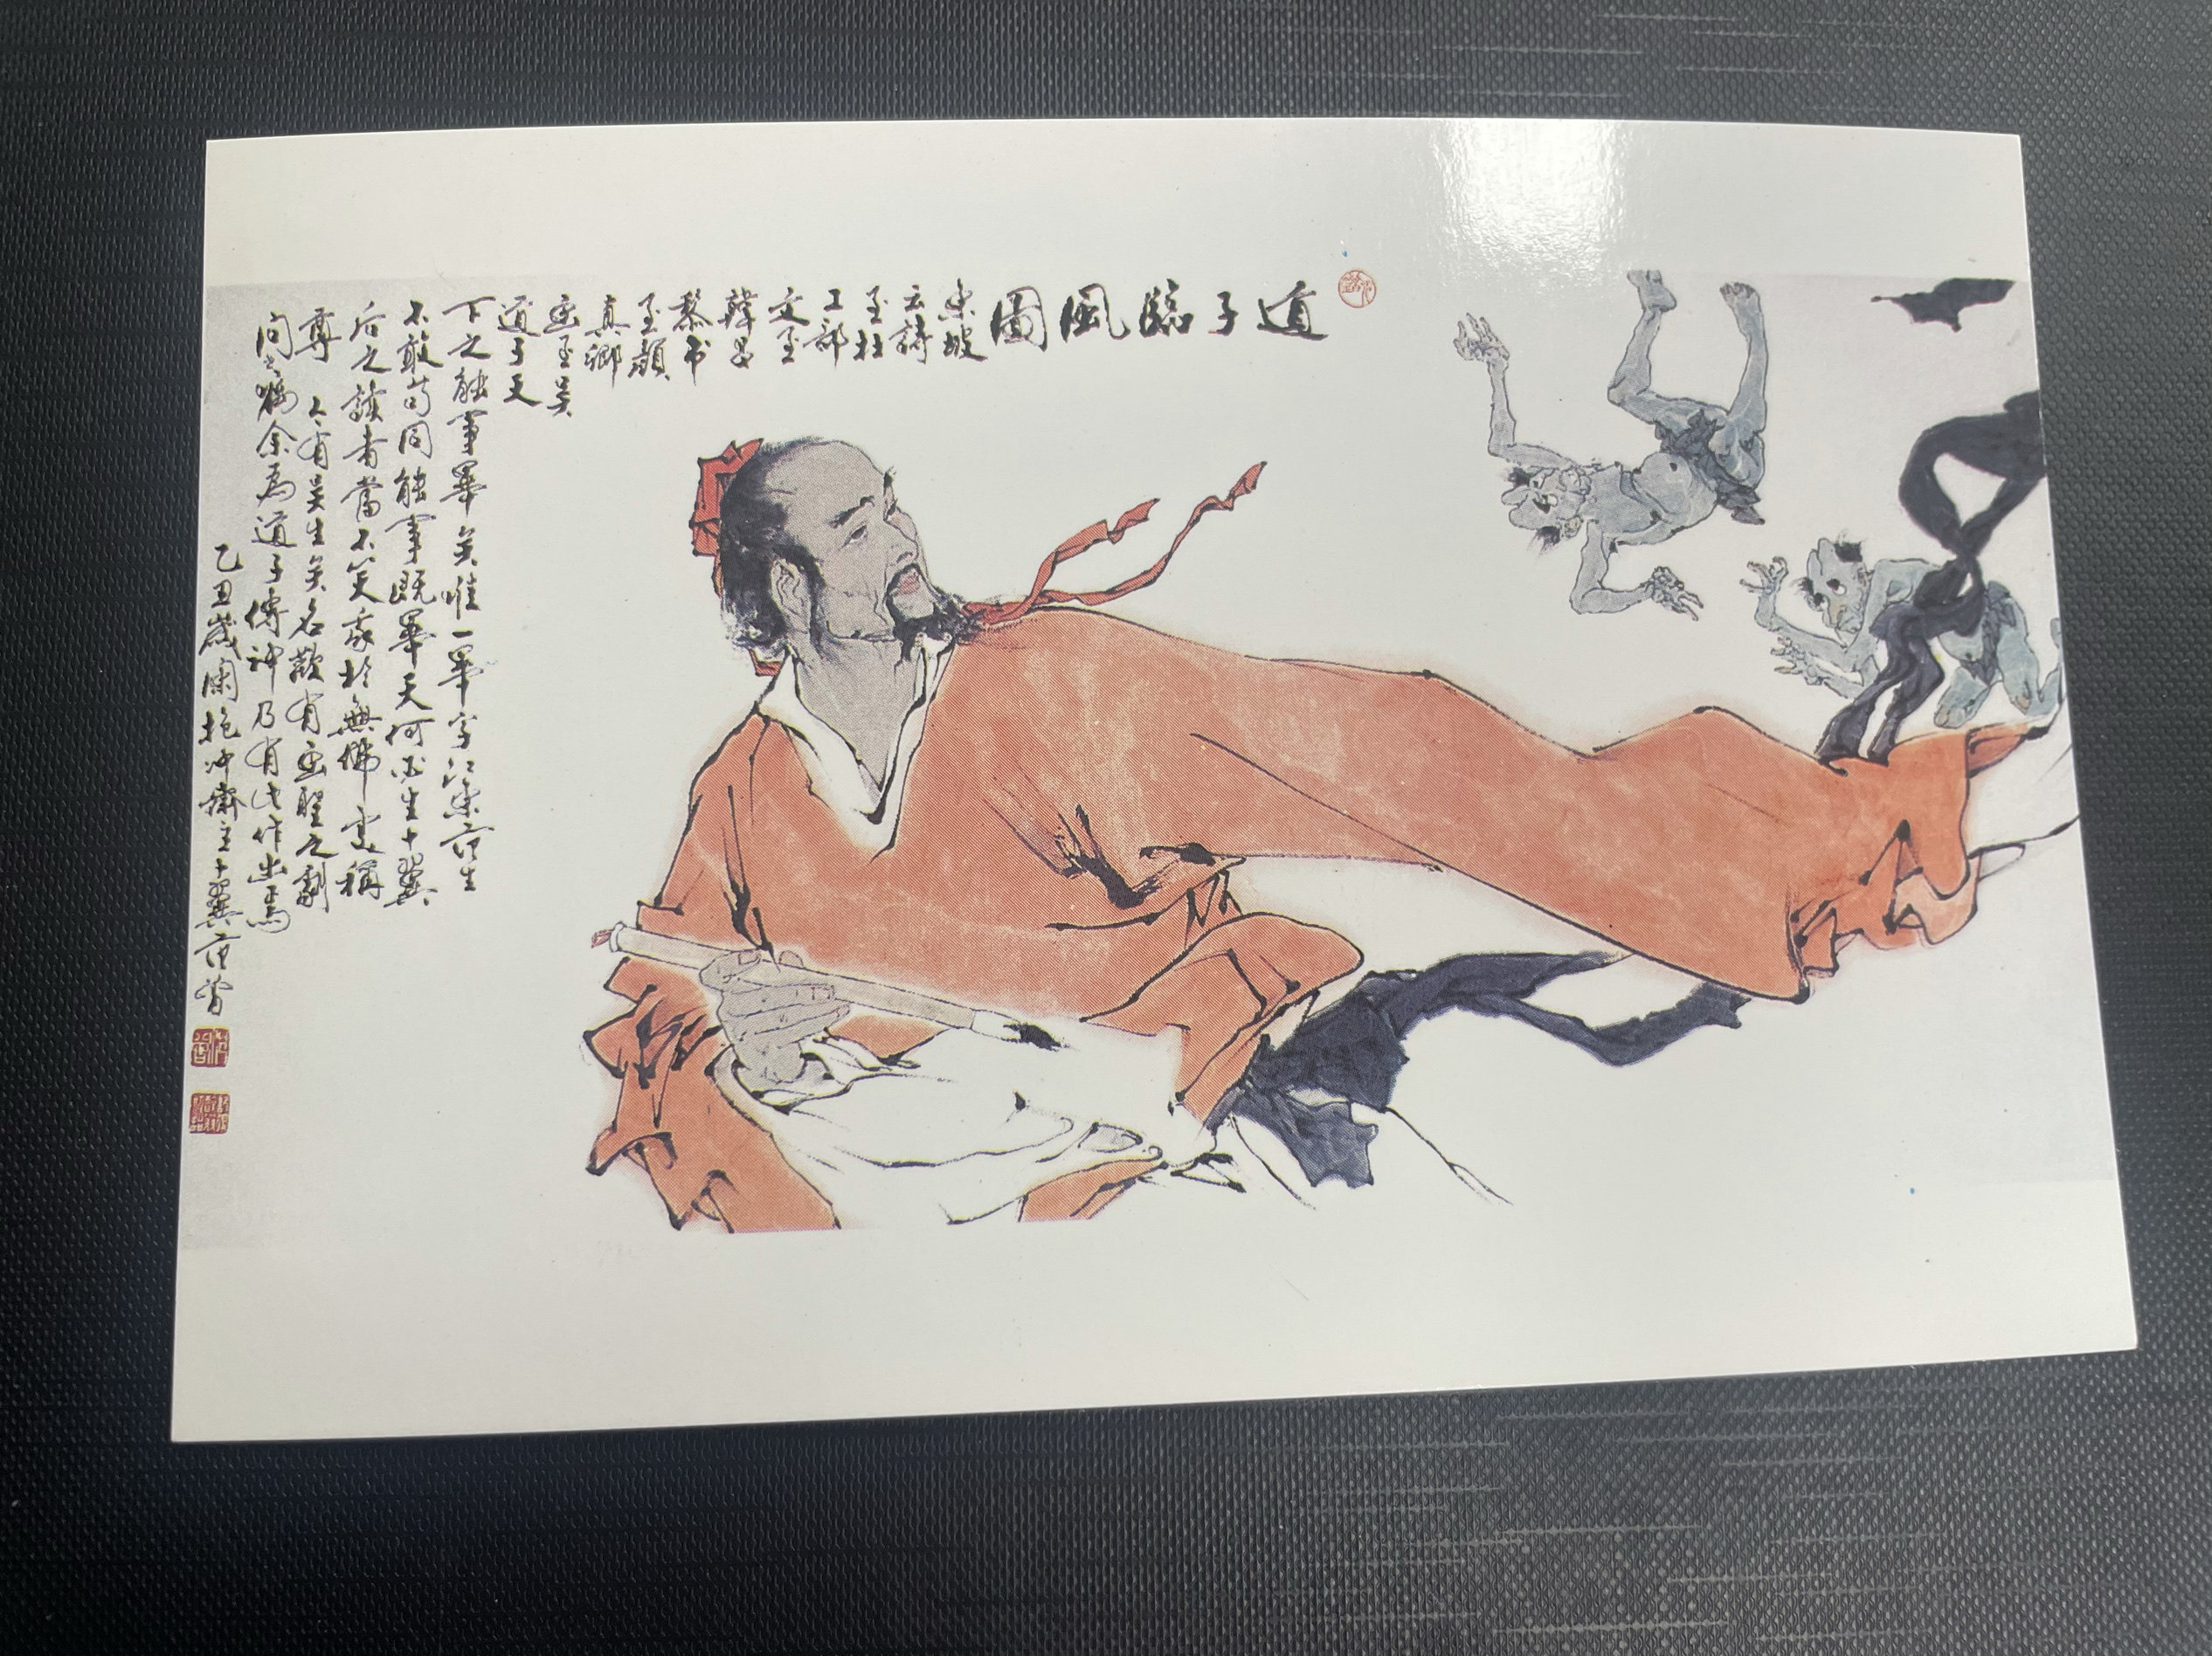 道子臨風圖
東坡
云詩
至杜
工部
文至
韓昌
黎书
至顏
真卿
画至吴
道子天
下之能事畢矣唯一畢字江東范生
不敢苟同能事既畢天何必生十翼
后之读者當不笑我於無佛處稱
尊 有吴生矣名有画聖之
嘱余為道子傳神乃有此作出焉
乙丑歲闌抱冲齋主十翼范曾